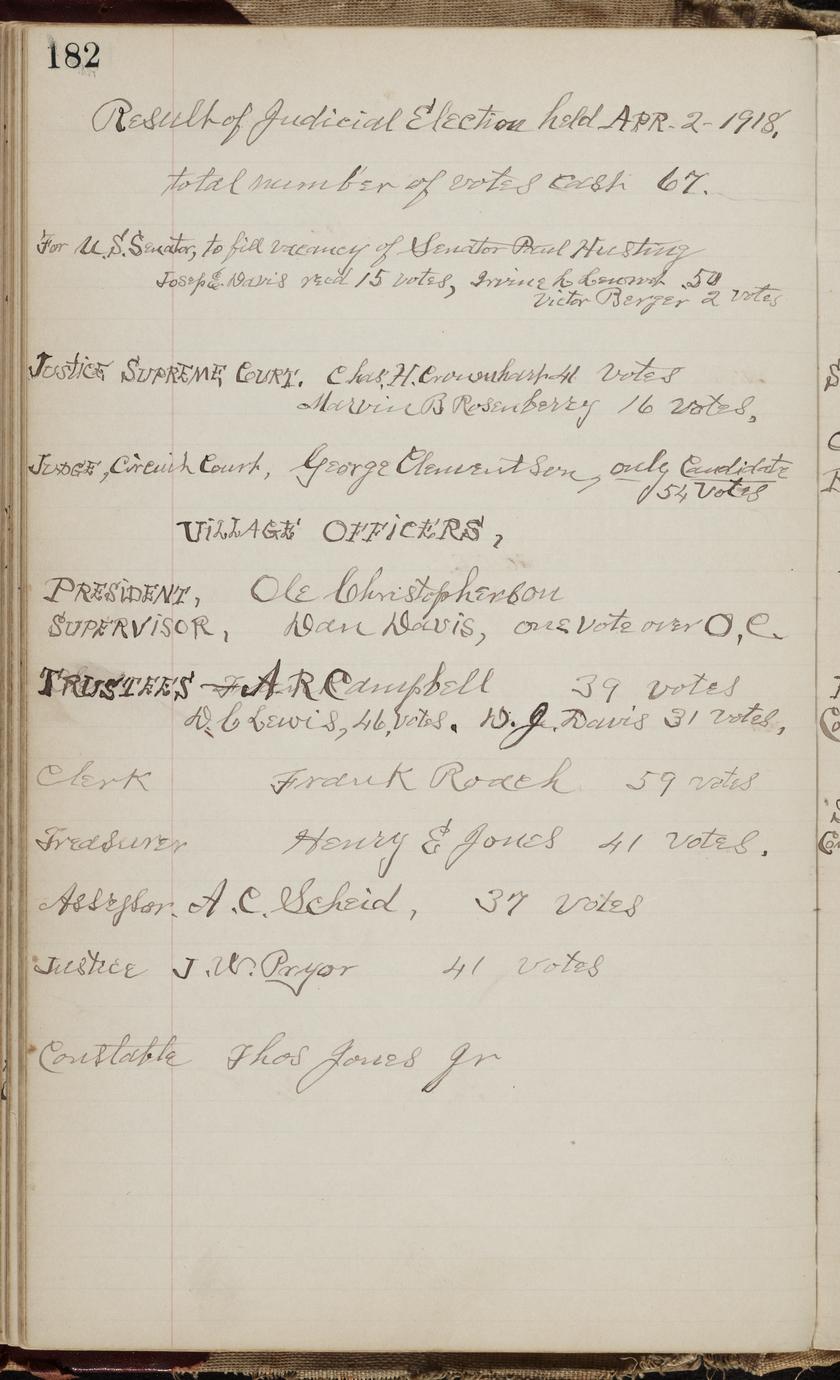 182
Result of Judicial Election held APR. 2 - 1918.
total number of votes cast 67.
For U.S. Senator, to fill vacancy of Senator Paul Husting
Josep E. Davis recd 15 votes, Irvine L Lenroot 50
Victor Berger 2 votes
JUSTICE SUPREME COURT. Chas. H. Crownhart 41 votes
Marvin B Rosenberry 16 votes,
JUDGE, Circuit Court, George Clementson, only Candidate
54 votes
VILLAGE OFFICERS,
PRESIDENT, Ole Christopherson
SUPERVISOR, Dan Davis, one vote over O, C.
TRUSTEES A R Campbell 39 votes
D. C Lewis, 46, votes. D. J. Davis 31 votes,
Clerk Frank Roach 59 votes
Treasurer Henry E Jones 41 votes.
Assessor. A. C. Scheid, 37 votes
Justice J. W. Pryor 41 votes
Constable Thos Jones Jr